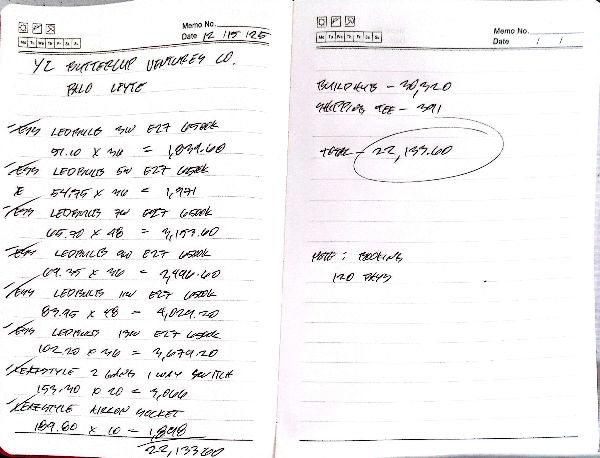 Memo No.
Mo Tu We Th Fr Sa Su
Date 12 / 15 / 25
YZ BUTTERCUP VENTURES CO.
PALO LEYTE
LEDBULB 3W E27 6500K
51.10 x 36 = 1,839.60
LEDBULB 5W E27 6500K
54.75 x 36 = 1,971
LEDBULB 7W E27 6500K
65.70 x 48 = 3,153.60
LEDBULB 9W E27 6500K
69.35 x 36 = 2,496.60
LEDBULB 11W E27 6500K
83.95 x 48 = 4,029.20
LEDBULB 13W E27 6500K
102.20 x 36 = 3,679.20
2 GANG 1 WAY SWITCH
153.30 x 20 = 3,066
AIRCON SOCKET
189.80 x 10 = 1,898
22,133.60
Memo No.
Mo Tu We Th Fr Sa Su
Date / /
BUILDHUB - 30,320
SHIPPING FEE - 391
TOTAL - 22,133.60
NOTE : BOOKING
120 DAYS